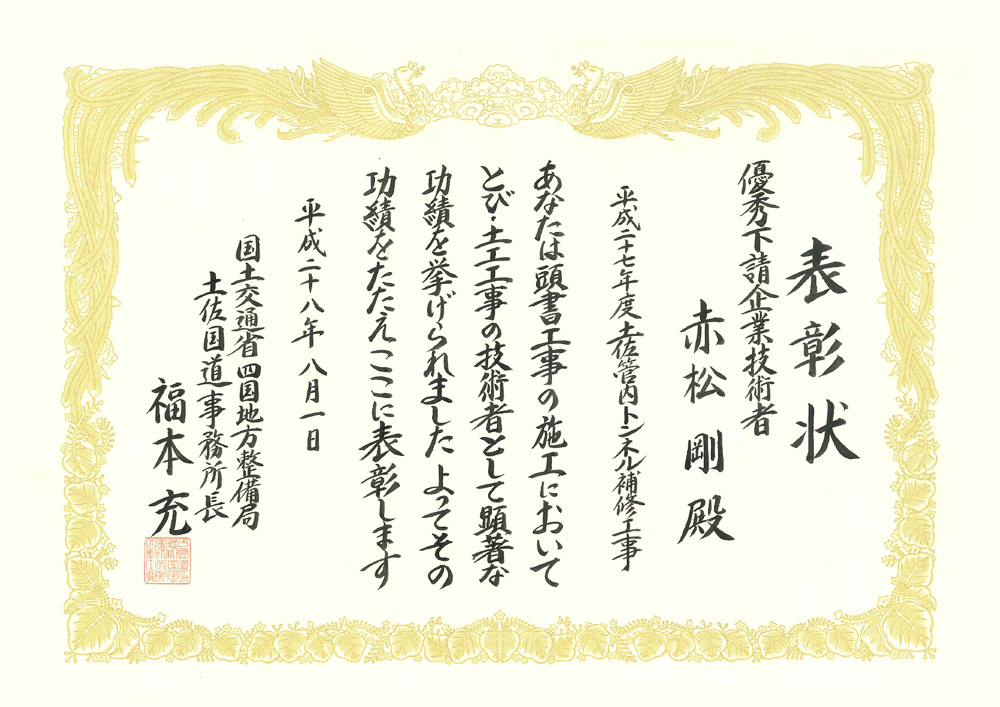 表彰状
優秀下請企業技術者
赤松剛殿
平成二十七年度土佐管内トンネル補修工事
あなたは頭書工事の施工において
とび・土工工事の技術者として顕著な
功績を挙げられました よってその
功績をたたえここに表彰します
平成二十八年八月一日
国土交通省四国地方整備局
土佐国道事務所長
福本充